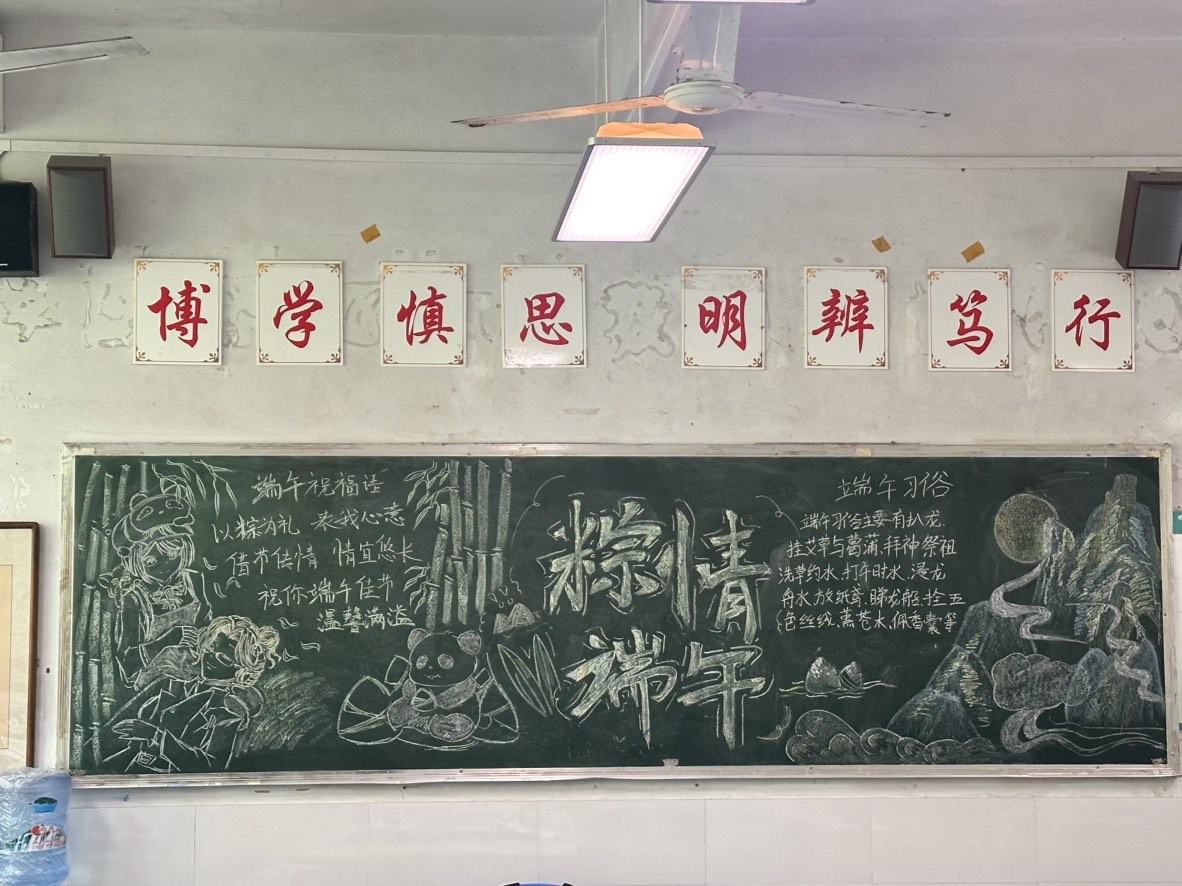 博学慎思 明辨笃行
端午祝福语
以粽为礼 表我心意
借节传情 情宜悠长
祝你端午佳节
温馨满溢
粽情
端午
端午习俗
端午习俗主要有扒龙
挂艾草与菖蒲、拜神祭祖
洗草药水、打午时水、浸龙
舟水、放纸鸢、睇龙船、拴五
色丝线、熏苍术、佩香囊等